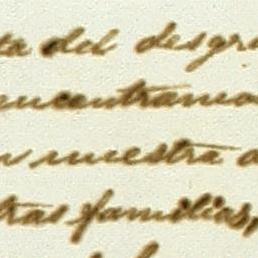 ta del desgra
encontramos
n nuestra a
tras familias,